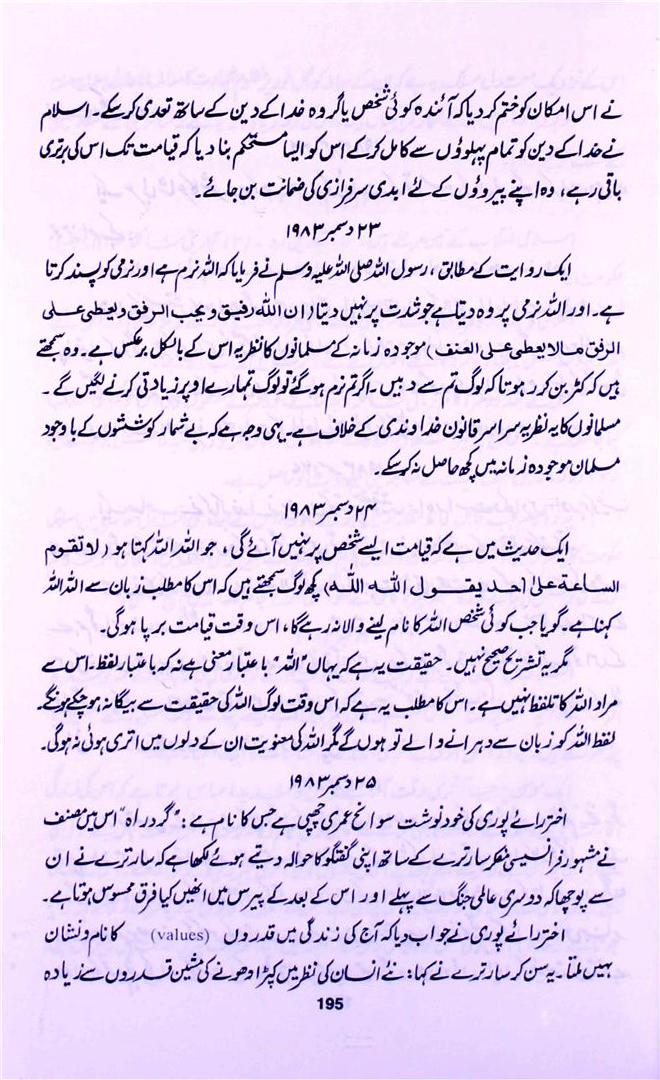 نے اس امکان کو ختم کر دیا کہ آئندہ کوئی شخص یا گروہ خدا کے دین کے ساتھ تعدی کر سکے۔ اسلام
نے خدا کے دین کو تمام پہلوؤں سے کامل کر کے اس کو ایسا مستحکم بنا دیا کہ قیامت تک اس کی برتری
باقی رہے، وہ اپنے پیروؤں کے لئے ابدی سرفرازی کی ضمانت بن جائے۔
۲۳ دسمبر ۱۹۸۳
ایک روایت کے مطابق، رسول اللہ صلی اللہ علیہ وسلم نے فرمایا کہ اللہ نرم ہے اور نرمی کو پسند کرتا
ہے۔ اور اللہ نرمی پر وہ دیتا ہے جو شدت پر نہیں دیتا (ان الله رفيق ويحب الرفق ويعطى على
الرفق مالا يعطى على العنف) موجودہ زمانہ کے مسلمانوں کا نظریہ اس کے بالکل برعکس ہے۔ وہ سمجھتے
ہیں کہ کٹر بن کر رہو تاکہ لوگ تم سے دبیں۔ اگر تم نرم ہو گئے تو لوگ تمہارے اوپر زیادتی کرنے لگیں گے۔
مسلمانوں کا یہ نظریہ سراسر قانون خداوندی کے خلاف ہے۔ یہی وجہ ہے کہ بے شمار کوششوں کے باوجود
مسلمان موجودہ زمانہ میں کچھ حاصل نہ کر سکے۔
۲۴ دسمبر ۱۹۸۳
ایک حدیث میں ہے کہ قیامت ایسے شخص پر نہیں آئے گی، جو اللہ اللہ کہتا ہو (لا تقوم
الساعة على احد يقول الله الله) کچھ لوگ سمجھتے ہیں کہ اس کا مطلب زبان سے اللہ اللہ
کہنا ہے۔ گویا جب کوئی شخص اللہ کا نام لینے والا نہ رہے گا، اس وقت قیامت برپا ہوگی۔
مگر یہ تشریح صحیح نہیں۔ حقیقت یہ ہے کہ یہاں "اللہ" باعتبار معنی ہے نہ کہ باعتبار لفظ۔ اس سے
مراد اللہ کا تلفظ نہیں ہے۔ اس کا مطلب یہ ہے کہ اس وقت لوگ اللہ کی حقیقت سے بیگانہ ہو چکے ہونگے۔
لفظ اللہ کو زبان سے دہرانے والے تو ہوں گے مگر اللہ کی معنویت ان کے دلوں میں اتری ہوئی نہ ہوگی۔
۲۵ دسمبر ۱۹۸۳
اختر رائے پوری کی خود نوشت سوانح عمری چھپی ہے جس کا نام ہے: "گرد راہ" اس میں مصنف
نے مشہور فرانسیسی مفکر سارترے کے ساتھ اپنی گفتگو کا حوالہ دیتے ہوئے لکھا ہے کہ سارترے نے ان
سے پوچھا کہ دوسری عالمی جنگ سے پہلے اور اس کے بعد کے پیرس میں انھیں کیا فرق محسوس ہوتا ہے۔
اختر رائے پوری نے جواب دیا کہ آج کی زندگی میں قدروں (values) کا نام و نشان
نہیں ملتا۔ یہ سن کر سارترے نے کہا: نئے انسان کی نظر میں کپڑا دھونے کی مشین قدروں سے زیادہ
195